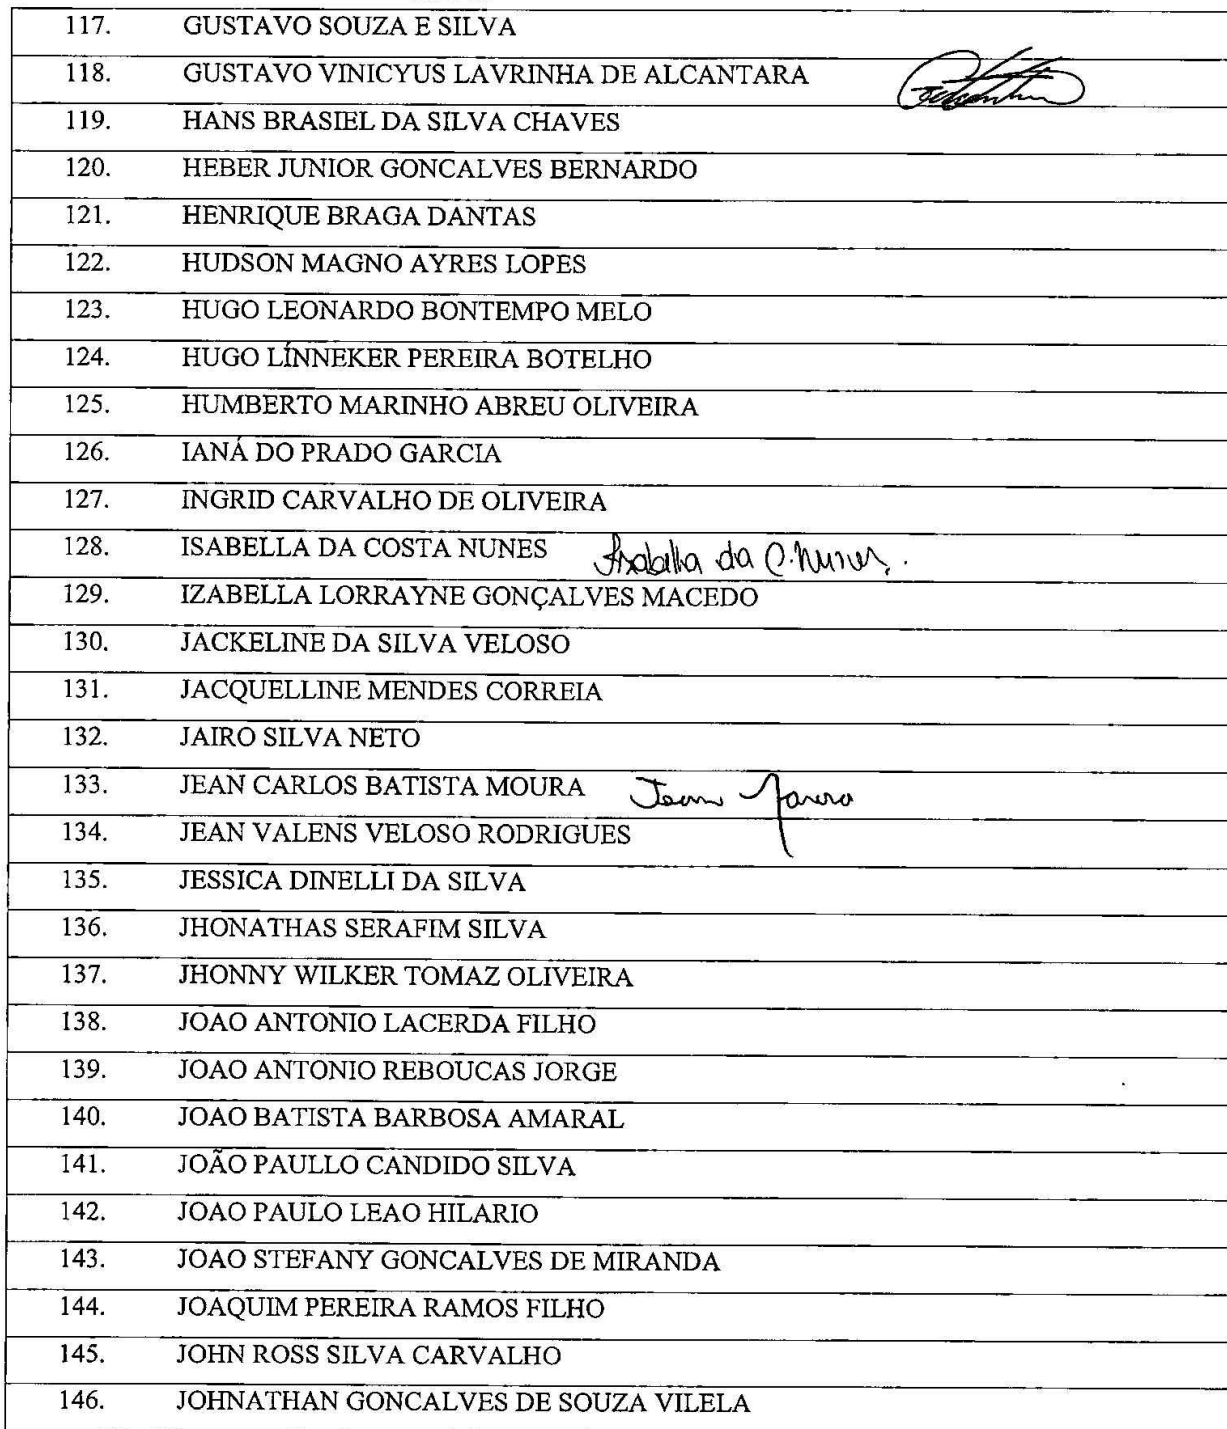 117. GUSTAVO SOUZA E SILVA
118. GUSTAVO VINICYUS LAVRINHA DE ALCANTARA
119. HANS BRASIEL DA SILVA CHAVES
120. HEBER JUNIOR GONCALVES BERNARDO
121. HENRIQUE BRAGA DANTAS
122. HUDSON MAGNO AYRES LOPES
123. HUGO LEONARDO BONTEMPO MELO
124. HUGO LÍNNEKER PEREIRA BOTELHO
125. HUMBERTO MARINHO ABREU OLIVEIRA
126. IANÁ DO PRADO GARCIA
127. INGRID CARVALHO DE OLIVEIRA
128. ISABELLA DA COSTA NUNES Isabella da C. Nunes.
129. IZABELLA LORRAYNE GONÇALVES MACEDO
130. JACKELINE DA SILVA VELOSO
131. JACQUELLINE MENDES CORREIA
132. JAIRO SILVA NETO
133. JEAN CARLOS BATISTA MOURA Jean Moura
134. JEAN VALENS VELOSO RODRIGUES
135. JESSICA DINELLI DA SILVA
136. JHONATHAS SERAFIM SILVA
137. JHONNY WILKER TOMAZ OLIVEIRA
138. JOAO ANTONIO LACERDA FILHO
139. JOAO ANTONIO REBOUCAS JORGE
140. JOAO BATISTA BARBOSA AMARAL
141. JOÃO PAULLO CANDIDO SILVA
142. JOAO PAULO LEAO HILARIO
143. JOAO STEFANY GONCALVES DE MIRANDA
144. JOAQUIM PEREIRA RAMOS FILHO
145. JOHN ROSS SILVA CARVALHO
146. JOHNATHAN GONCALVES DE SOUZA VILELA